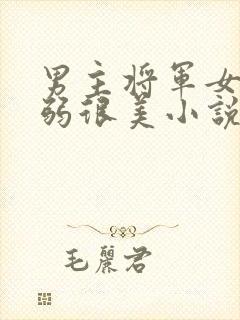 男主将軍女
弱很美小說
毛麗君